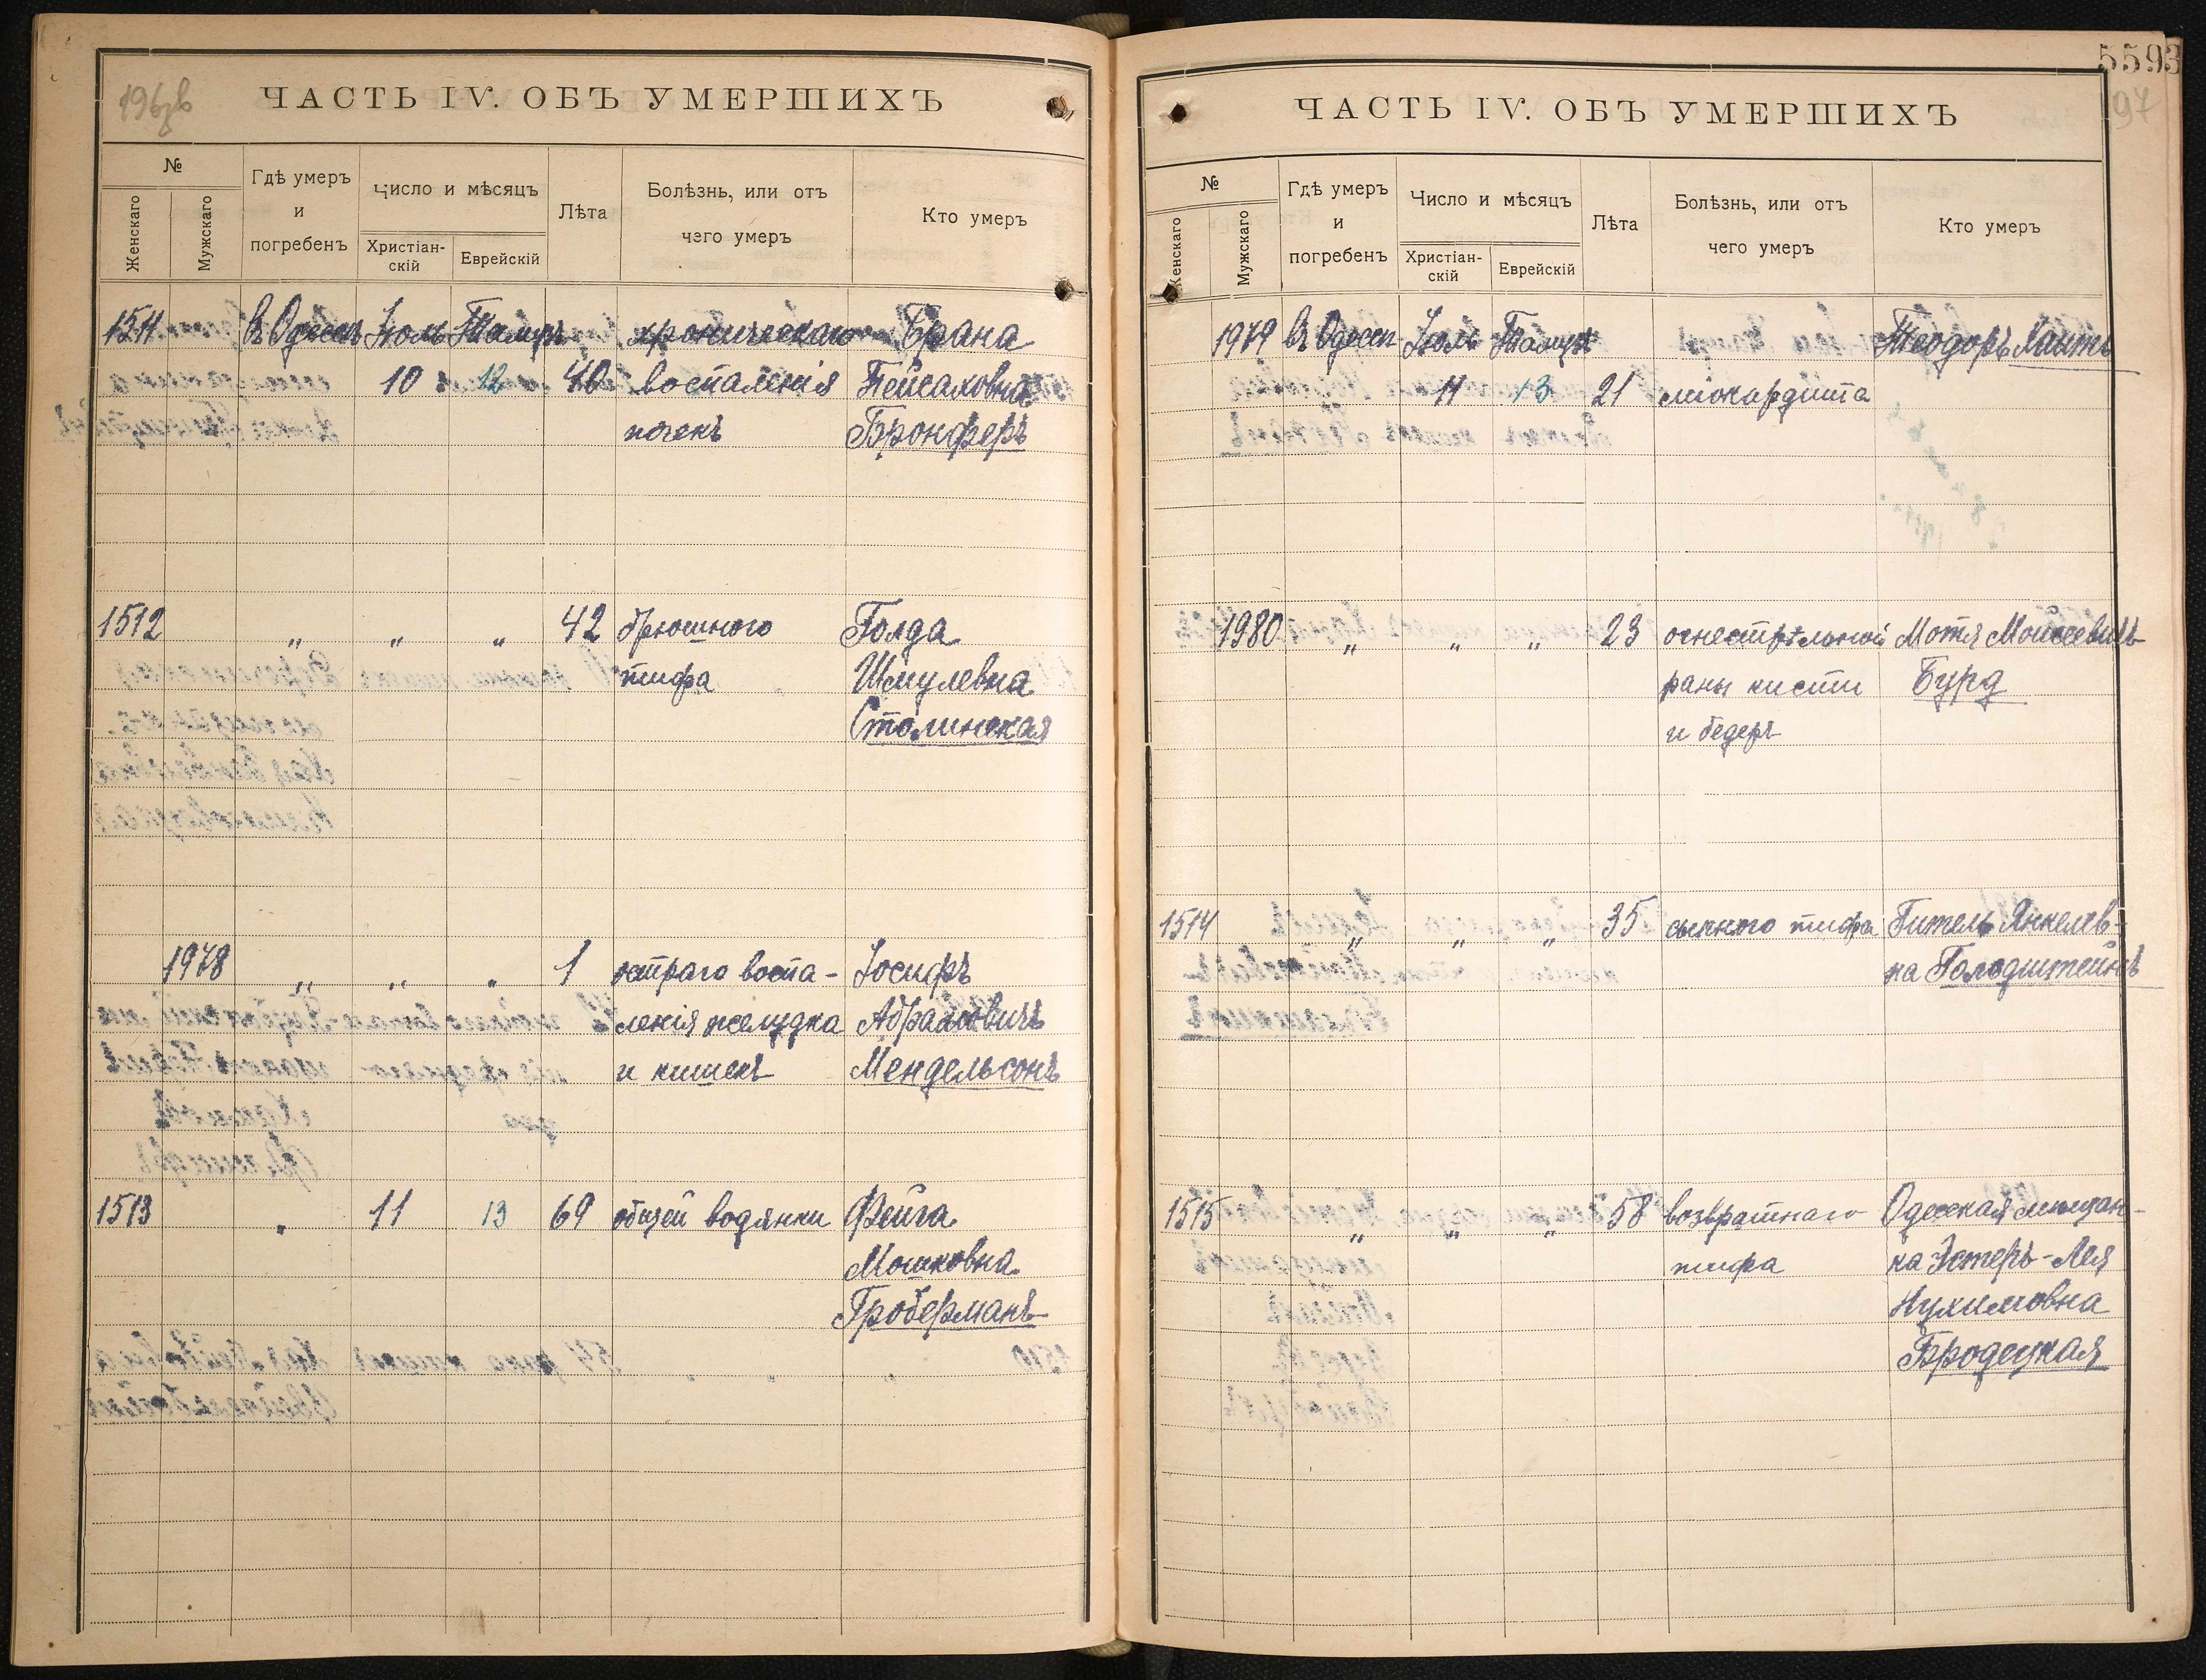 196 зв
ЧАСТЬ IV. ОБЪ УМЕРШИХЪ
№
Женскаго
Мужскаго
Гдѣ умеръ
и
погребенъ
Число и мѣсяцъ
Христіан-
скій
Еврейскій
Лѣта
Болѣзнь, или отъ
чего умеръ
Кто умеръ
1511 въ Одессѣ Іюль Тамузъ хроническаго Брана
10 12 40 воспаленія Пейсаховна
почекъ Бронферъ
1512 „ „ „ 42 брюшного Голда
тифа Шмулевна
Столинская
1978 „ „ „ 1 остраго воспа- Іосифъ
ленія желудка Абрамовичъ
и кишекъ Мендельсонъ
1513 „ 11 13 69 общей водянки Фейга
Мошковна
Гроберманъ
5593
197
ЧАСТЬ IV. ОБЪ УМЕРШИХЪ
№
Женскаго
Мужскаго
Гдѣ умеръ
и
погребенъ
Число и мѣсяцъ
Христіан-
скій
Еврейскій
Лѣта
Болѣзнь, или отъ
чего умеръ
Кто умеръ
1979 въ Одессѣ Іюль Тамузъ Теодоръ
11 13 21 міокардита
1980 „ „ „ 23 огнестрѣльной Мотя Моисеевичъ
раны кисти Бурд
и бедеръ
1514 „ „ „ 35 сыпного тифа Гитель Янкелев-
на Голодштейнъ
1515 „ „ „ 58 возвратнаго Одесская мѣщан-
тифа ка Эстеръ-Лея
Нухимовна
Бродецкая